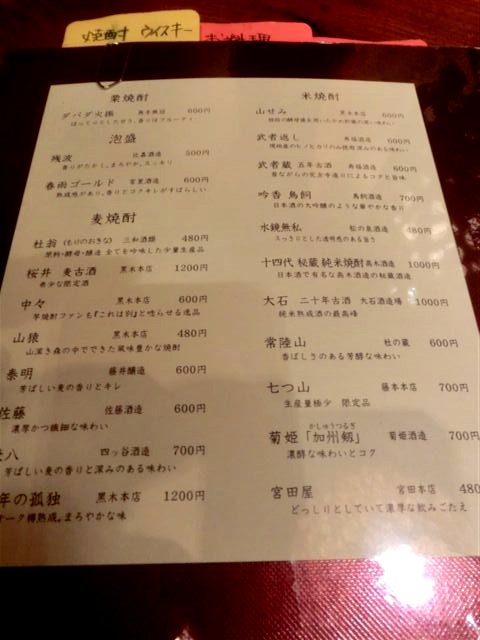 焼酎 ウイスキー
栗焼酎
ダバダ火振 無手無冠 600円
ほっこりとした甘う、香りはフルーティ
泡盛
残波 比嘉酒造 500円
香りがたかく、まろやか、スッキリ
春雨ゴールド 宮里酒造 600円
熟成感があり、香りとコクキレがすばらしい
麦焼酎
杜翁 (もりのおきな) 三和酒類 480円
原料・酵母・醸造 全てを吟味した少量生産品
桜井 麦古酒 黒木本店 1200円
希少な限定酒
中々 黒木本店 600円
芋焼酎ファンも『これは別』と唸らせる逸品
山猿 黒木本店 480円
山深き森の中でできた風味豊かな焼酎
泰明 藤井醸造 600円
芳ばしい麦の香りとキレ
佐藤 佐藤酒造 600円
濃厚かつ繊細な味わい
八 四ッ谷酒造 700円
芳ばしい麦の香りと深みのある味わい
年の孤独 黒木本店 1200円
ーク樽熟成。まろやかな味
米焼酎
山せみ 黒木本店 600円
武者返し 寿福酒造 600円
武者蔵 五年古酒 寿福酒造 600円
昔ながらの完全手造りによるコクと旨味
吟香 鳥飼 鳥飼酒造 700円
日本酒の大吟醸のような華やかな香り
水鏡無私 松の泉酒造 480円
スっきりとした透明感のある旨さ
十四代 秘蔵 純米焼酎 高木酒造 1000円
日本酒で有名な高木酒造の秘蔵酒
大石 二十年古酒 大石酒造場 1000円
純米熟成酒の最高峰
常陸山 杜の蔵 600円
香ばしさのある芳醇な味わい
七つ山 藤本本店 700円
生産量極少 限定品
かしゅうつるぎ
菊姫「加州剱」 菊姫酒造 700円
濃醇な味わいとコク
宮田屋 宮田本店 480
どっしりとしていて濃厚な飲みごたえ